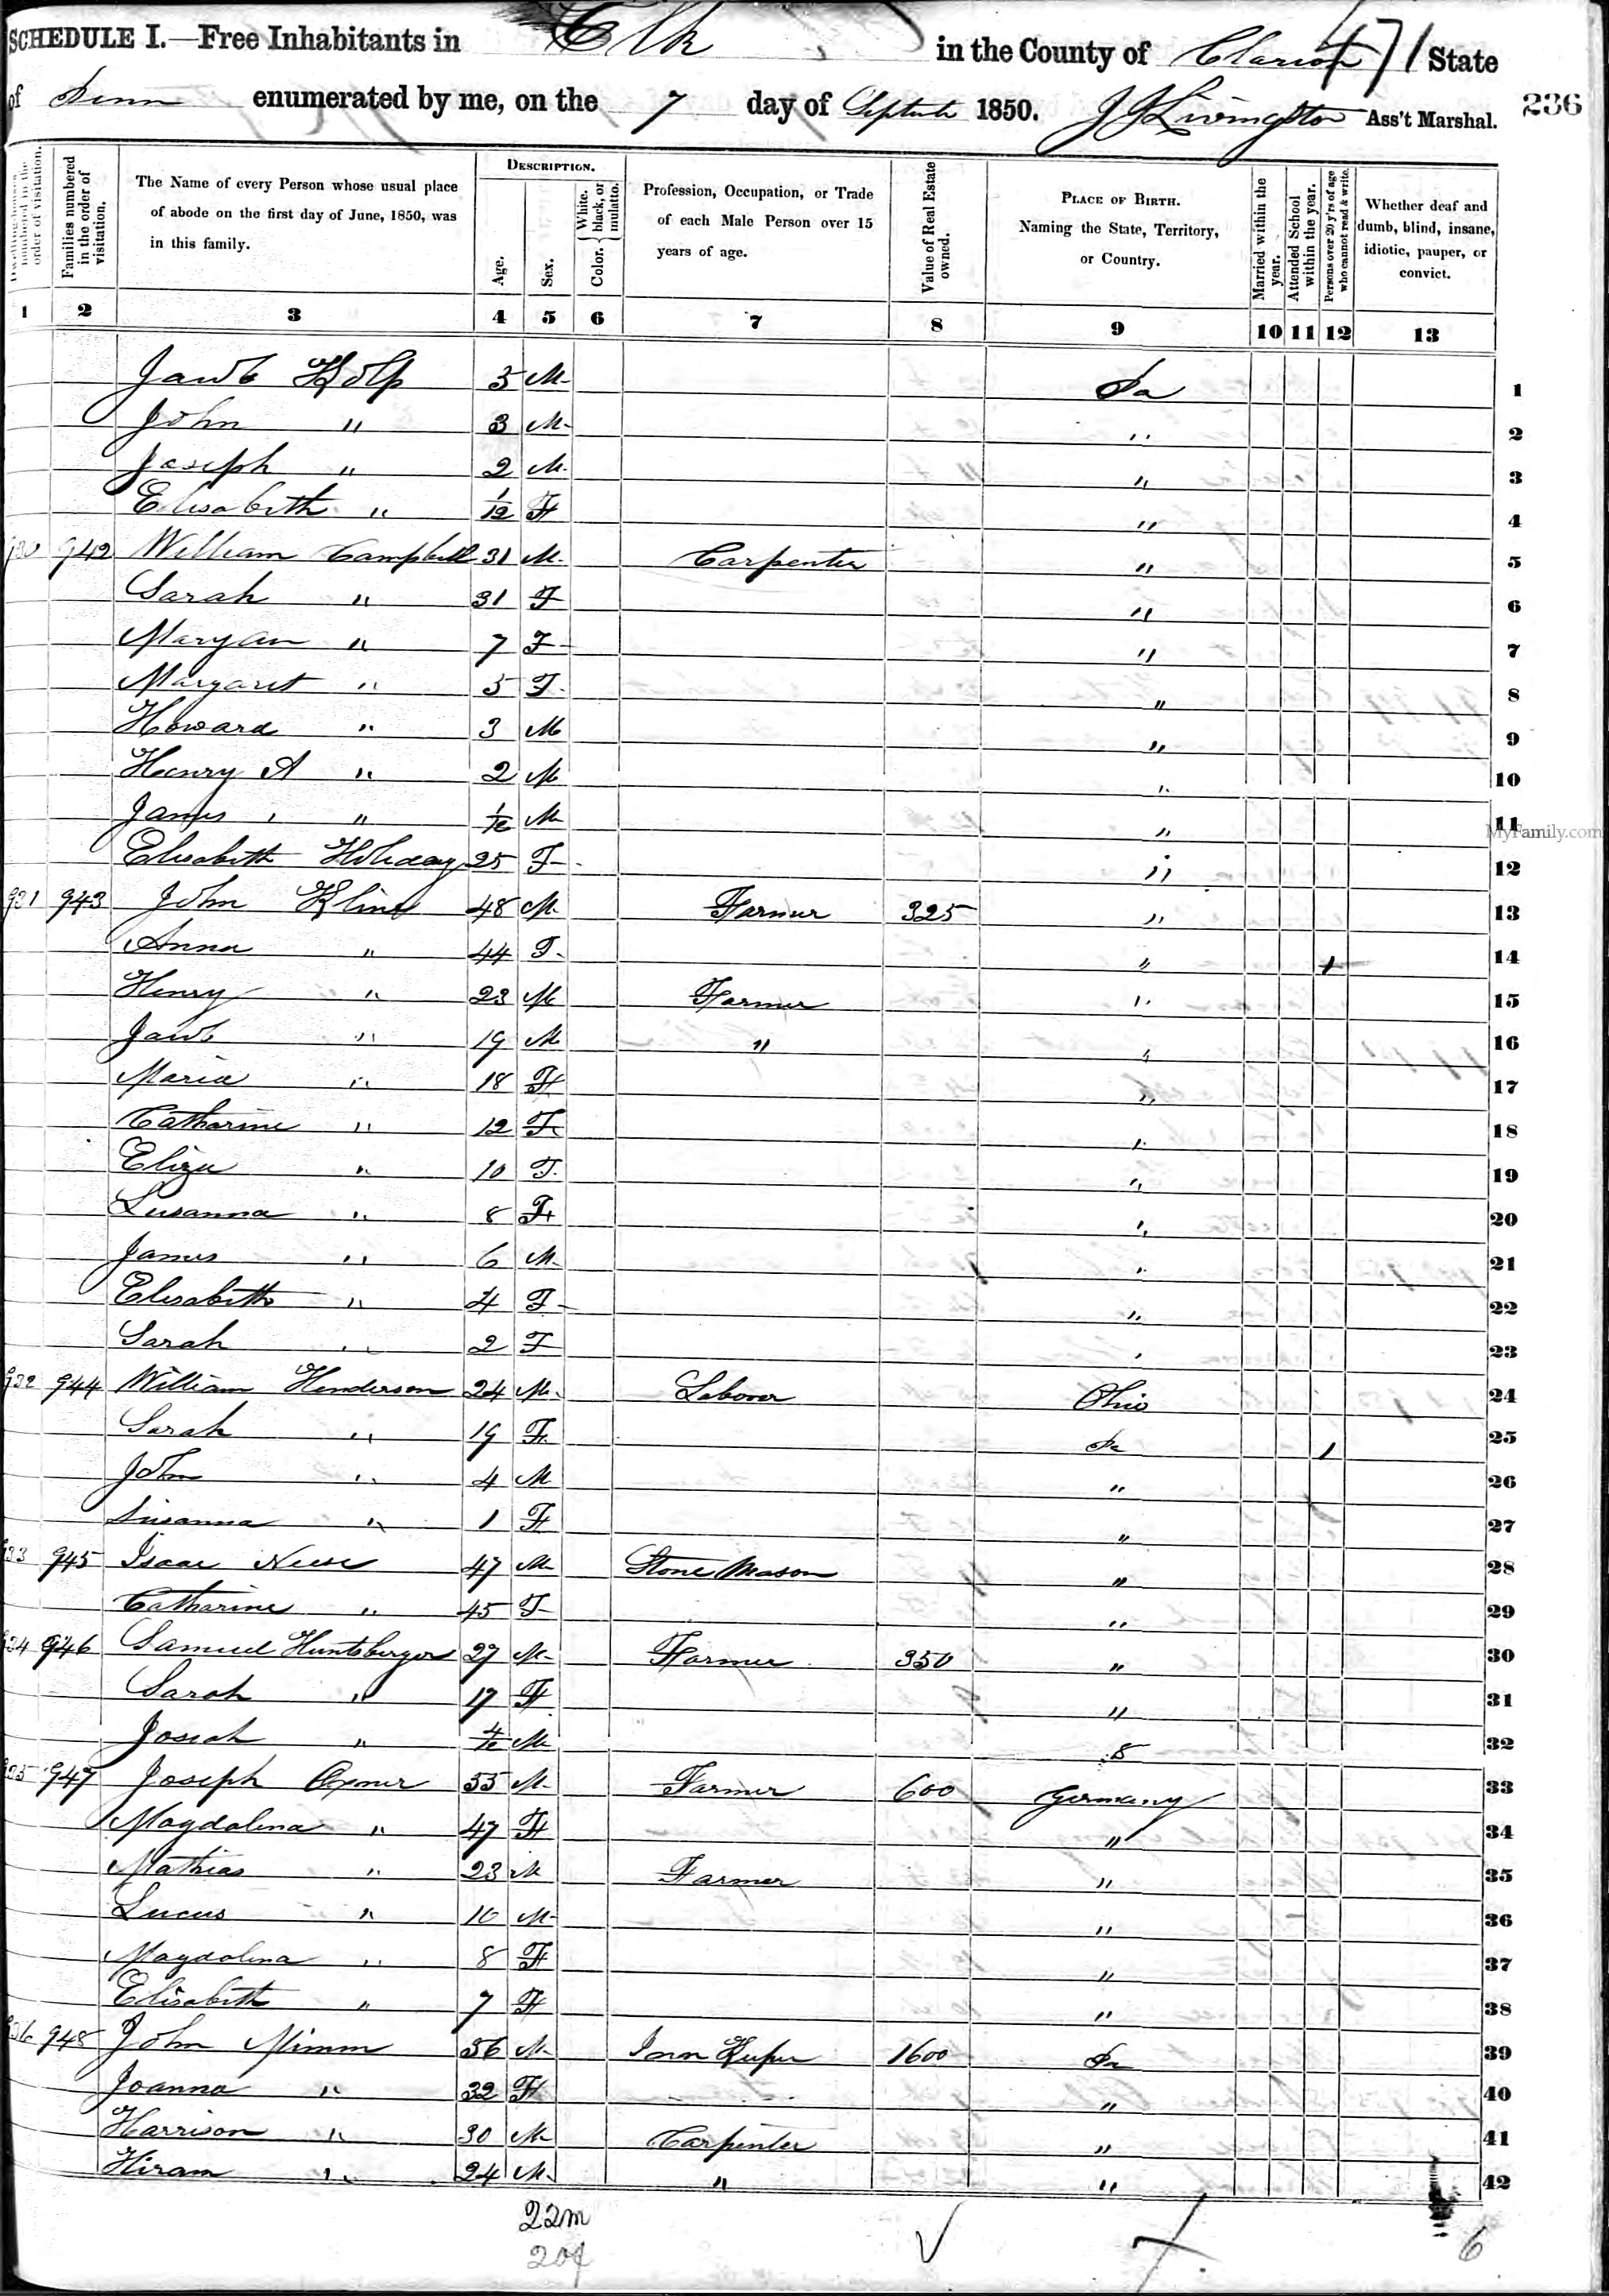 SCHEDULE I.—Free Inhabitants in Elk in the County of Clarion 471 State
of Penn enumerated by me, on the 7 day of September 1850. J J Livingston Ass't Marshal. 236
Dwelling-houses numbered in the order of visitation.
Families numbered in the order of visitation.
The Name of every Person whose usual place of abode on the first day of June, 1850, was in this family.
DESCRIPTION.
Age.
Sex.
Color. { White. black, or mulatto.
Profession, Occupation, or Trade of each Male Person over 15 years of age.
Value of Real Estate owned.
PLACE OF BIRTH. Naming the State, Territory, or Country.
Married within the year.
Attended School within the year.
Persons over 20 y'rs of age who cannot read & write.
Whether deaf and dumb, blind, insane, idiotic, pauper, or convict.
1 2 3 4 5 6 7 8 9 10 11 12 13
Jacob Kolp 5 M Pa 1
John " 3 M " 2
Joseph " 2 M " 3
Elisabeth " 1/12 F " 4
930 942 William Campbell 31 M Carpenter " 5
Sarah " 31 F " 6
Maryan " 7 F " 7
Margaret " 5 F " 8
Howard " 3 M " 9
Henry A " 2 M " 10
James " 1/12 M " 11
MyFamily.com
Elisabeth Holiday 25 F " 12
931 943 John Kline 48 M Farmer 325 " 13
Anna " 44 F " 1 14
Henry " 23 M Farmer " 15
Jacob " 19 M " " 16
Maria " 18 F " 17
Catharine " 12 F " 18
Eliza " 10 F " 19
Susanna " 8 F " 20
James " 6 M " 21
Elisabeth " 4 F " 22
Sarah " 2 F " 23
932 944 William Henderson 24 M Laborer Ohio 24
Sarah " 19 F Pa 1 25
John " 4 M " 26
Susanna " 1 F " 27
933 945 Isaac 47 M Stone Mason " 28
Catharine " 45 F " 29
934 946 Samuel Huntsberger 27 M Farmer 350 " 30
Sarah " 17 F " 31
Josiah " 4/12 M " 32
935 947 Joseph 55 M Farmer 600 Germany 33
Magdalena " 47 F " 34
Mathias " 23 M Farmer " 35
Lucus " 10 M " 36
Magdalena " 8 F " 37
Elisabeth " 7 F " 38
936 948 John Mimm 36 M Inn Keeper 1600 Pa 39
Joanna " 32 F " 40
Harrison " 30 M Carpenter " 41
Hiram " 24 M " " 42
22m
20f
6